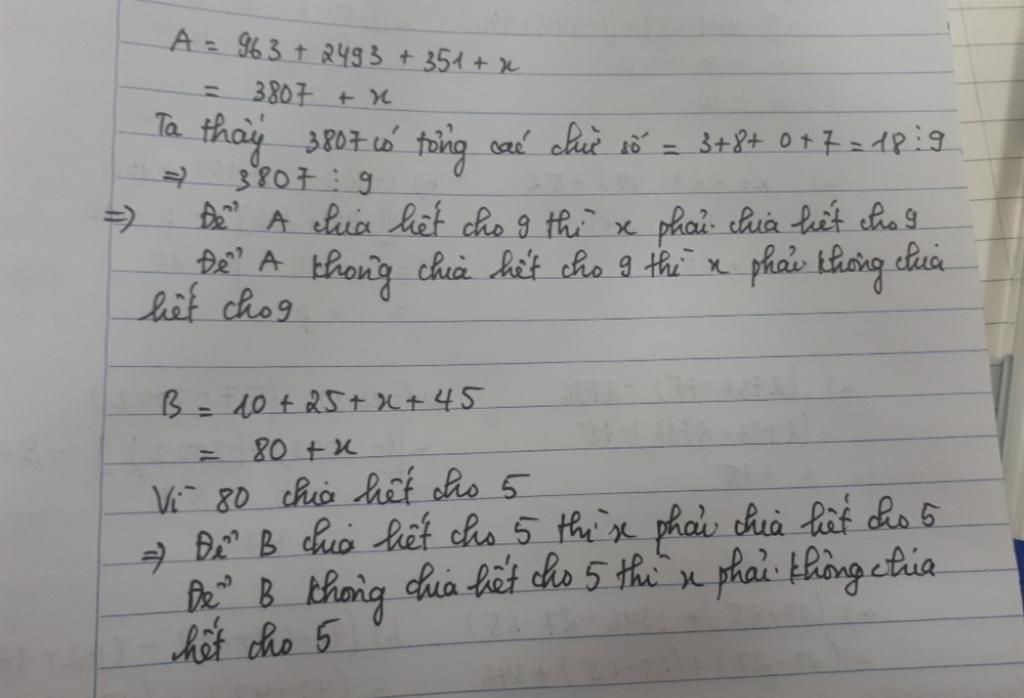 A = 963 + 2493 + 351 + x
= 3807 + x
Ta thấy 3807 có tổng các chữ số = 3+8+ 0+7 = 18 ⋮ 9
⇒ 3807 ⋮ 9
⇒ Để A chia hết cho 9 thì x phải chia hết cho 9
Để A không chia hết cho 9 thì x phải không chia
hết cho 9
B = 10 + 25 + x + 45
= 80 + x
Vì 80 chia hết cho 5
⇒ Để B chia hết cho 5 thì x phải chia hết cho 5
Để B không chia hết cho 5 thì x phải không chia
hết cho 5